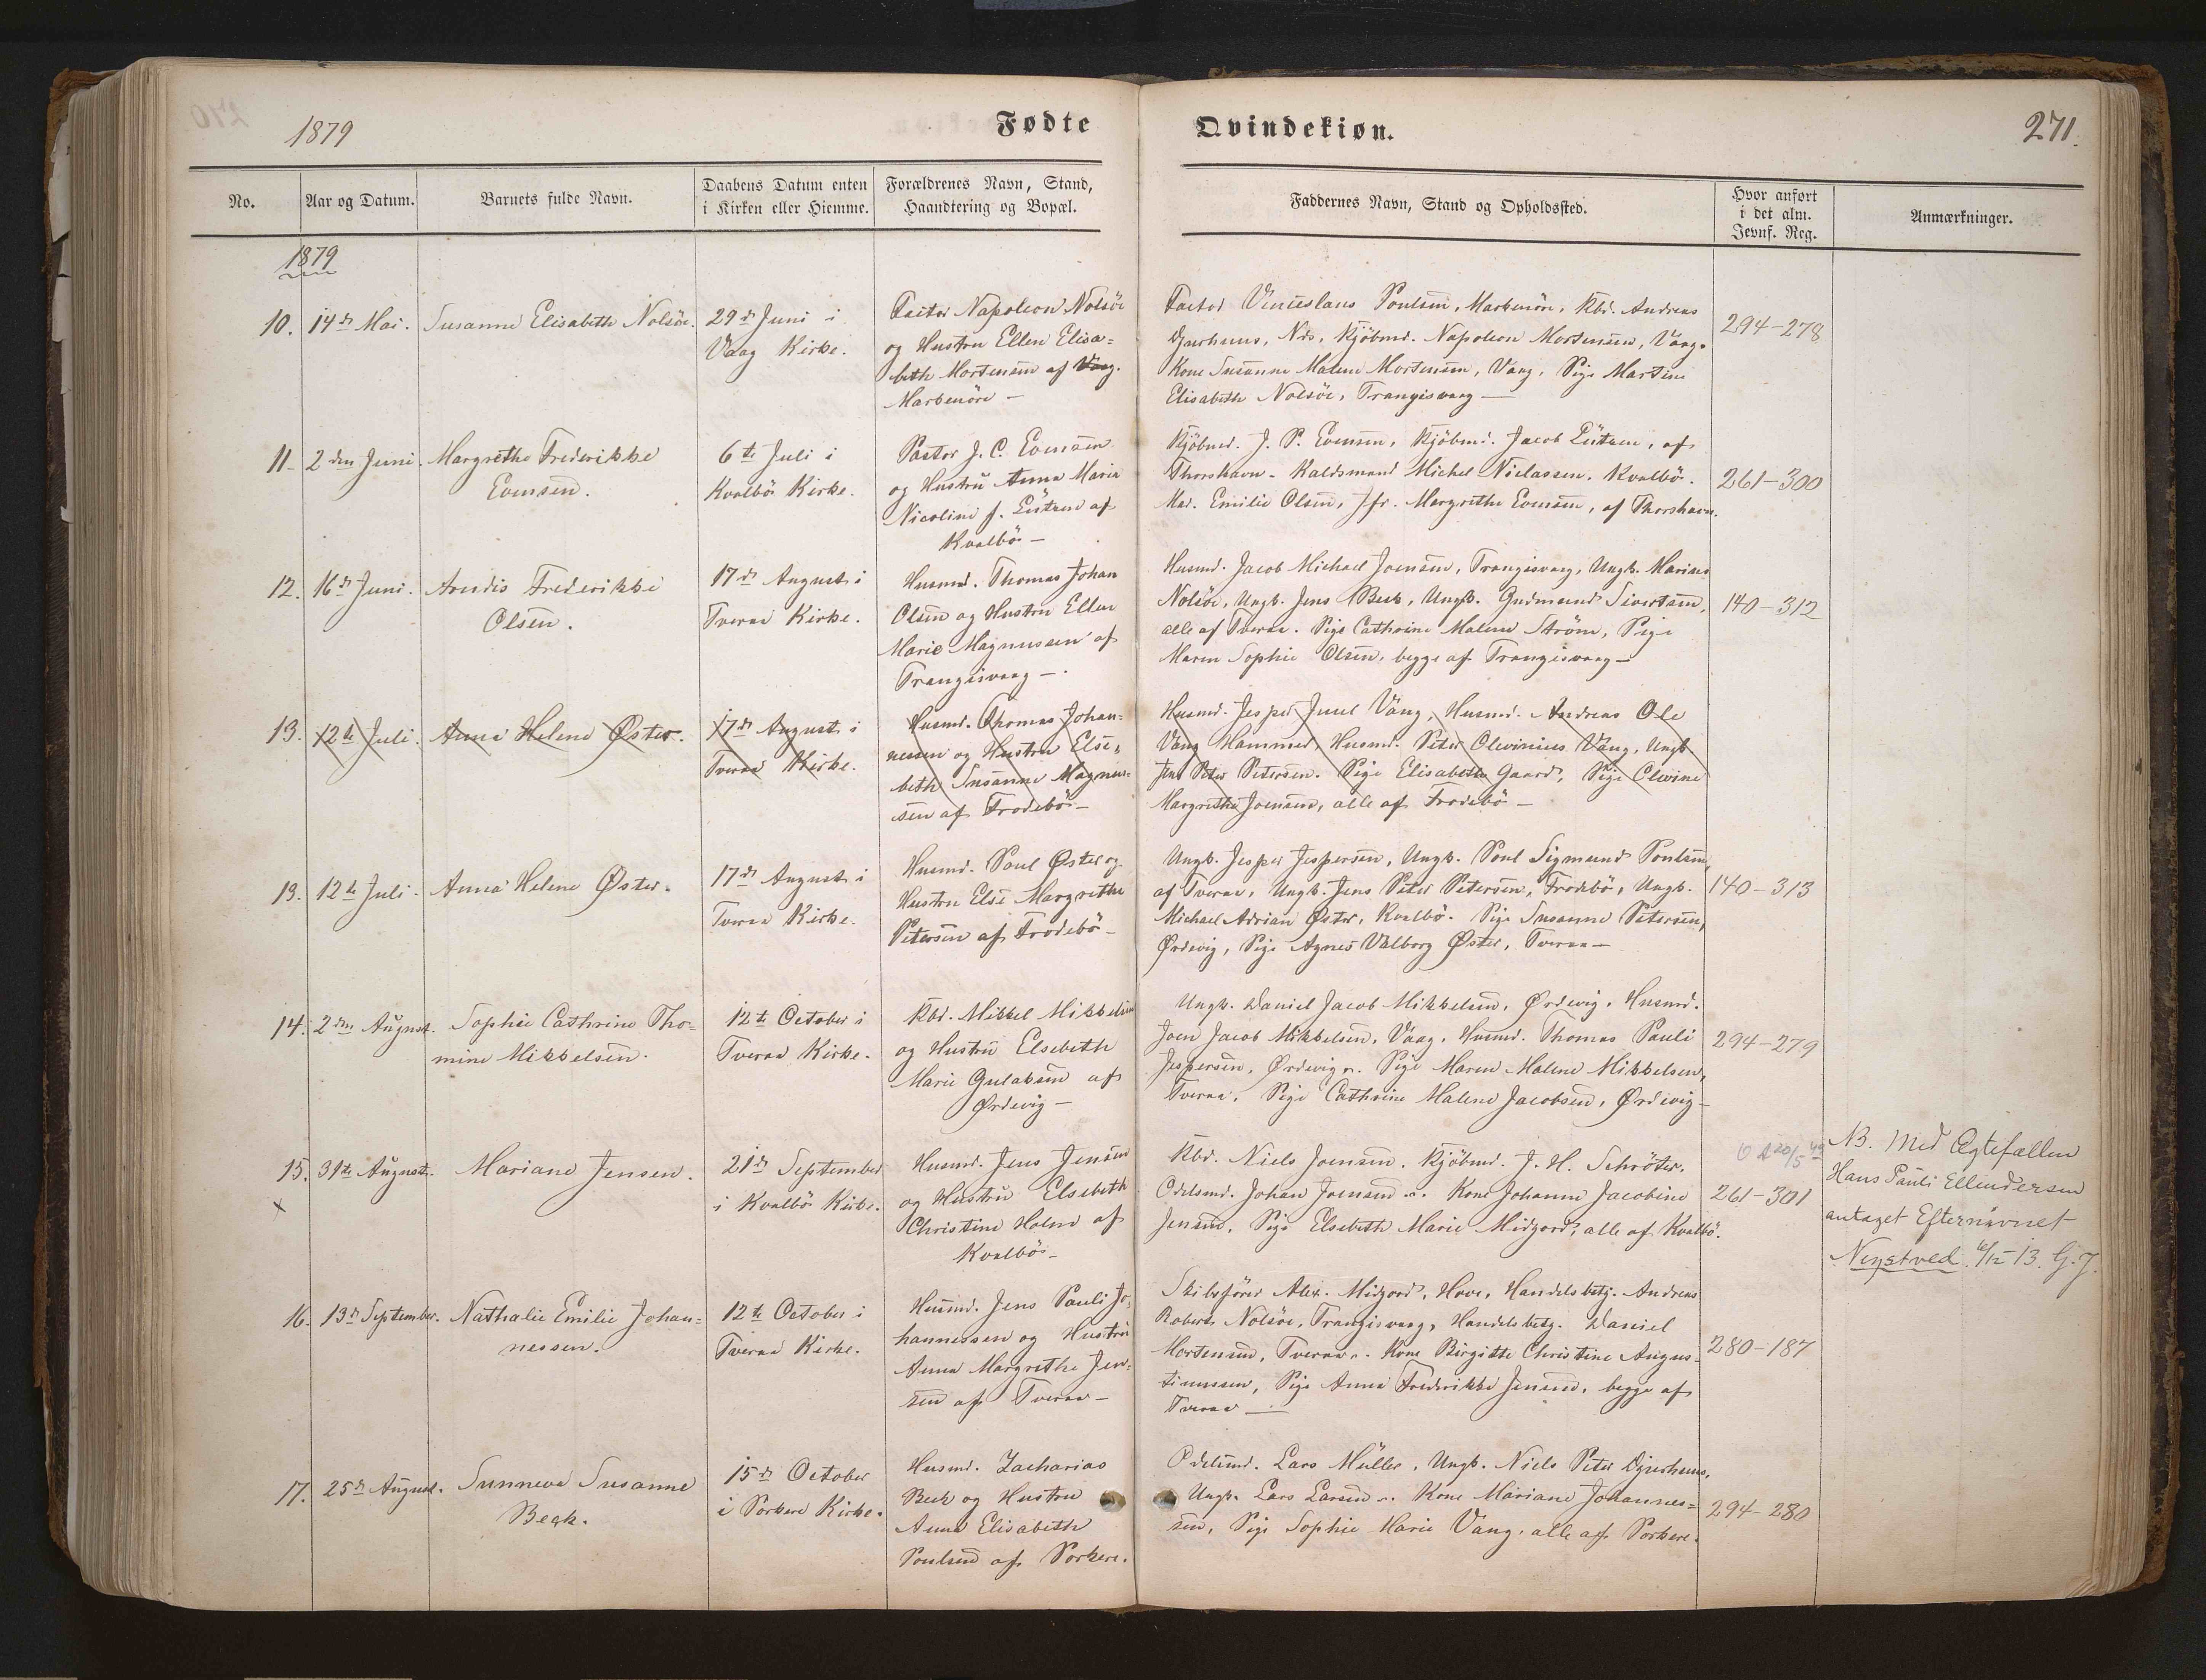 1879
Fødte
Qvindekiøn.
271.
No.
Aar og Datum.
Barnets fulde Navn.
Daabens Datum enten
i Kirken eller Hiemme.
Forældrenes Navn, Stand,
Haandtering og Bopæl.
Faddernes Navn, Stand og Opholdssted.
Hvor anført
i det alm.
Jevnf. Reg.
Anmærkninger.
1879
10.
14de Mai.
Susanne Elisabeth Nolsöe.
29de Juni i
Vaag Kirke.
Factor Napoleon Nolsöe
og Hustru Ellen Elisa=
beth Mortensen af Vaag.
Marbenöre —
Factor Venceslaus Poulsen, Marbenöre, Kbd. Andreas
Djurhuus, Næs, Kjöbmd. Napoleon Mortensen, Vaag.
Kone Susanne Malene Mortensen, Vaag, Pige Martine
Elisabeth Nolsöe, Trangisvaag —
294-278
11.
2den Juni.
Margrethe Frederikke
Evensen.
6te Juli i
Kvalbö Kirke.
Pastor J. C. Evensen
og Hustru Anna Maria
Nicoline f. Lützen af
Kvalbö —
Kjöbmd. J. P. Evensen, Kjöbmd. Jacob Lützen, af
Thorshavn - Kaldsmand Michel Niclassen, Kvalbö.
Mad. Emilie Olsen, Jfr. Margrethe Evensen, af Thorshavn.
261-300
12.
16de Juni.
Arndis Frederikke
Olsen.
17de August i
Tveraa Kirke.
Husmd. Thomas Johan
Olsen og Hustru Ellen
Marie Magnussen af
Trangisvaag —
Husmd. Jacob Michael Joensen, Trangisvaag, Ungk. Marius
Nolsöe, Ungk. Jens Beck, Ungk. Gudmund Sivertsen,
alle af Tveraa. Pige Cathrine Malene Ström, Pige
Maren Sophie Olsen, begge af Trangisvaag —
140-312
13.
12te Juli.
Anna Helene Øster.
17de August i
Tveraa Kirke.
Husmd. Thomas Johan=
nessen og Hustru Else=
beth Susanne Magnus=
sen af Frodebö —
Husmd. Jesper Juul Vang, Husmd. Andreas Ole
Vang Hammer, Husmd. Peter Olevinius Vang, Ungk.
Jens Peter Petersen. Pige Elisabeth Gaard, Pige Elevine
Margrethe Joensen, alle af Frodebö —
13.
12te Juli.
Anna Helene Øster.
17de August i
Tveraa Kirke.
Husmd. Poul Øster og
Hustru Else Margrethe
Petersen af Frodebö —
Ungk. Jesper Jespersen, Ungk. Poul Sigmund Poulsen,
af Tveraa, Ungk. Jens Peter Petersen, Frodebö, Ungk.
Michael Adrian Øster, Kvalbö. Pige Susanne Petersen,
Ørdevig, Pige Agnes Valborg Øster, Tveraa —
140-313
14.
2den August.
Sophie Cathrine Tho=
mine Mikkelsen.
12te October i
Tveraa Kirke.
Kbd. Mikkel Mikkelsen
og Hustru Elsebeth
Marie Gulaksen af
Ørdevig —
Ungk. Daniel Jacob Mikkelsen, Ørdevig, Husmd.
Joen Jacob Mikkelsen, Vaag, Husmd. Thomas Pauli
Jespersen, Ørdevig. Pige Maren Malene Mikkelsen,
Tveraa, Pige Cathrine Malene Jacobsen, Ørdevig —
294-279
15.
31te August.
Mariane Jensen.
21de September
i Kvalbö Kirke.
Husmd. Jens Jensen
og Hustru Elsebeth
Christine Holm af
Kvalbö —
Kbd. Niels Joensen, Kjöbmd. J. H. Schröter,
Odelsmd. Johan Joensen. Kone Johanne Jacobine
Jensen, Pige Elsebeth Marie Midgord, alle af Kvalbö.
20/5 49
261-301
NB. Med Ægtefællen
Hans Pauli Ellendersen
antaget Efternavnet
Neystved. 6/12 13. G. J.
x
16.
13de September.
Nathalie Emilie Johan=
nessen.
12te October i
Tveraa Kirke.
Husmd. Jens Pauli Jo=
hannessen og Hustru
Anna Margrethe Jen=
sen af Tveraa —
Skibsförer Alex. Midgord, Hove, Handelsbetj. Andreas
Robert Nolsöe, Trangisvaag, Handelsbetj. Daniel
Mortensen, Tveraa. Kone Birgitte Christine Augus=
tinussen, Pige Anna Frederikke Jensen, begge af
Tveraa —
280-187
17.
25de August.
Sunneva Susanne
Beck.
15de October
i Porkere Kirke.
Husmd. Zacharias
Beck og Hustru
Anna Elisabeth
Poulsen af Porkere.
Odelsmd. Lars Müller, Ungk. Niels Peter Djurhuus,
Ungk. Lars Larsen. Kone Mariane Johannes=
sen, Pige Sophie Marie Vang, alle af Porkere.
294-280